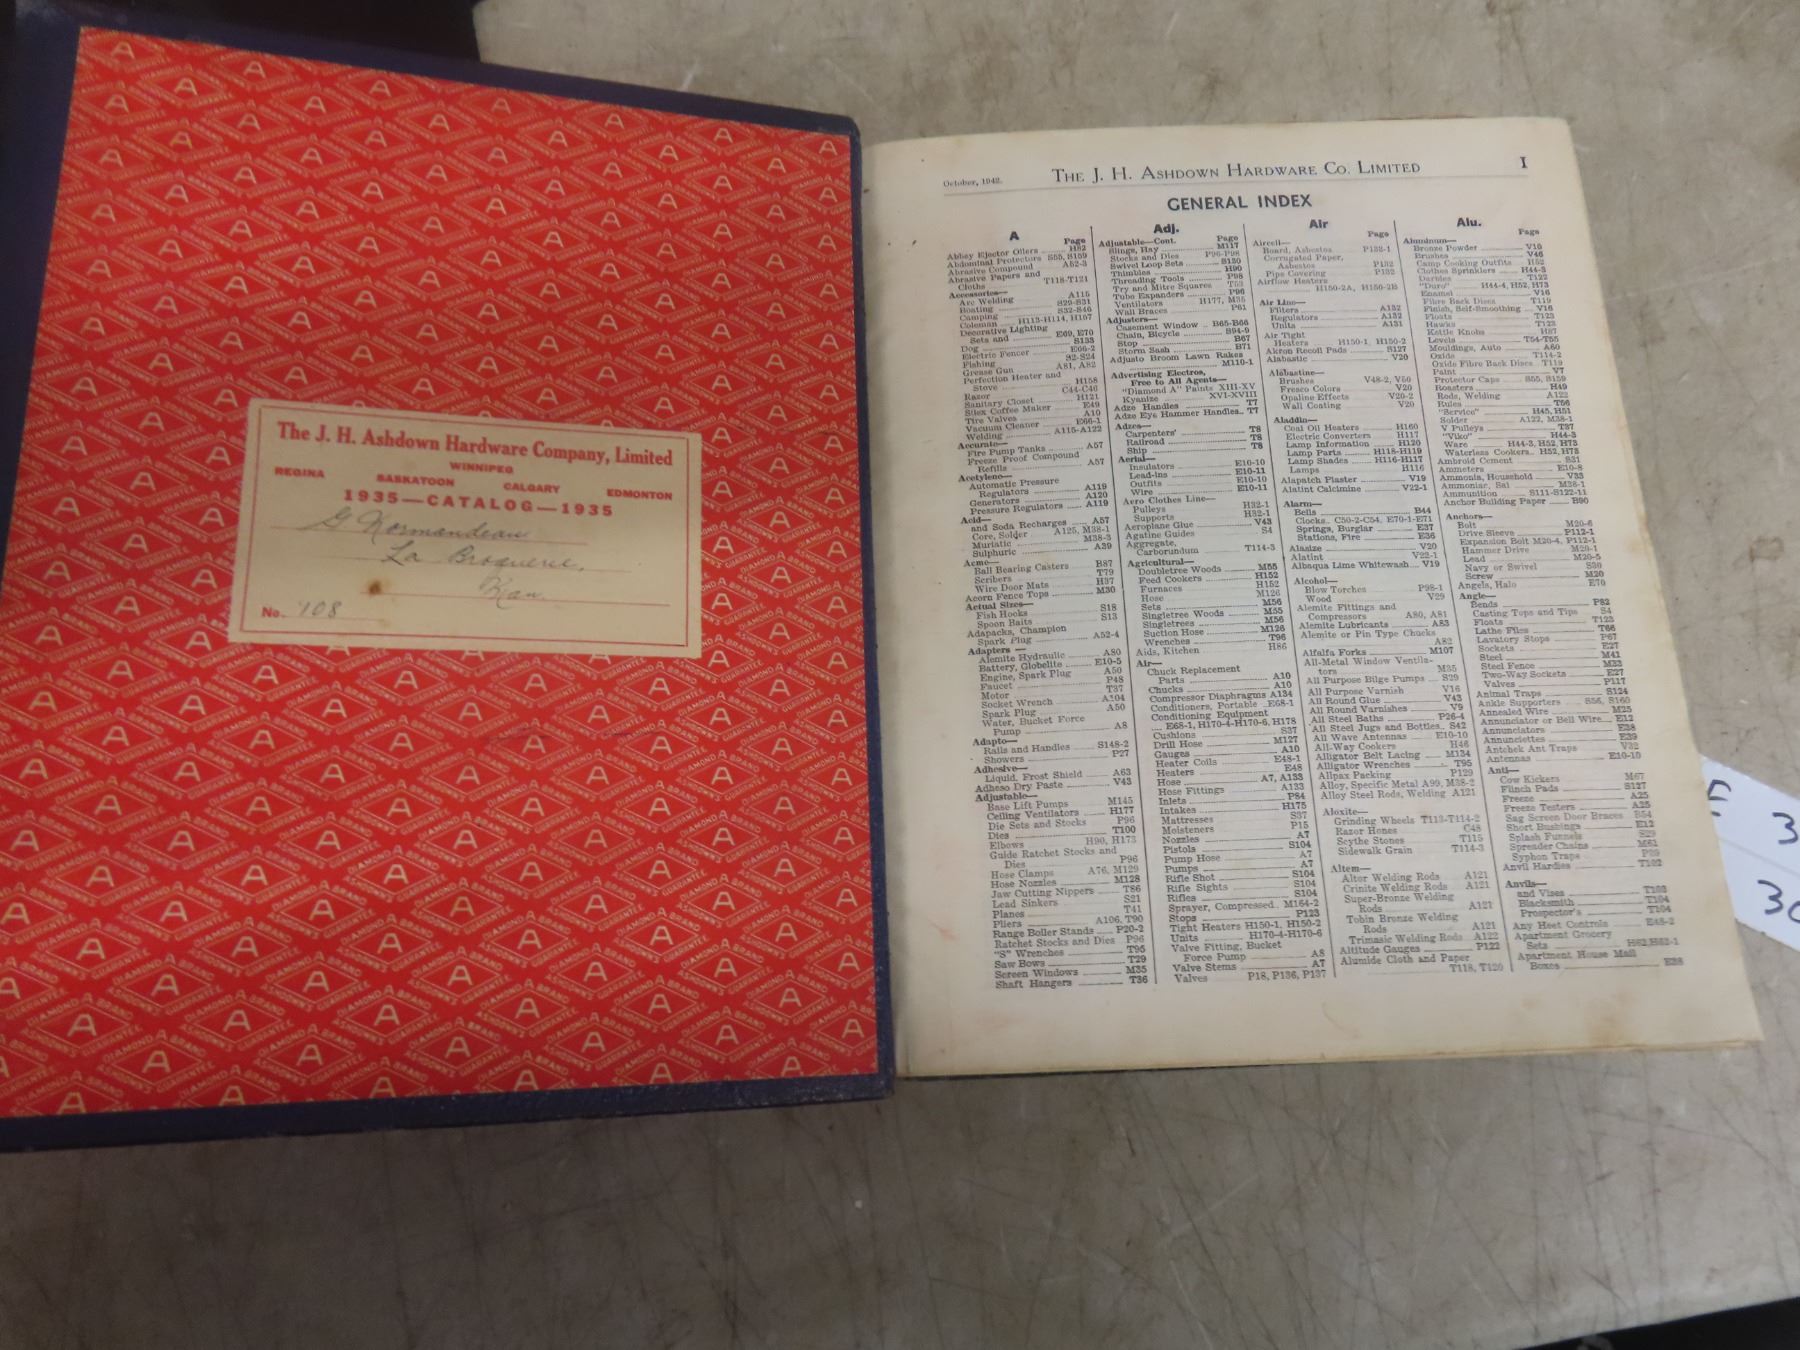 The J. H. Ashdown Hardware Company, Limited
WINNIPEG
REGINA SASKATOON CALGARY EDMONTON
1935—CATALOG—1935
G Normandeau
La Broquerie,
Man.
No. 108
DIAMOND A BRAND
ASHDOWN'S GUARANTEE
October, 1942. THE J. H. ASHDOWN HARDWARE CO. LIMITED I
GENERAL INDEX
A
Page
Abbey Ejector Oilers H82
Abdominal Protectors S55, S159
Abrasive Compound A52-3
Abrasive Papers and
Cloths T118-T121
Accessories—
Arc Welding A115
Boating S29-S31
Camping S32-S46
Coleman H113-H114, H167
Decorative Lighting
Sets and E69, E70
Dog S133
Electric Fencer E66-2
Fishing S2-S24
Grease Gun A81, A82
Perfection Heater and
Stove H158
Razor C44-C46
Sanitary Closet H121
Silex Coffee Maker E49
Tire Valves A10
Vacuum Cleaner E66-1
Welding A115-A122
Accurate—
Fire Pump Tanks A57
Freeze Proof Compound
Refills A57
Acetylene—
Automatic Pressure
Regulators A119
Generators A120
Pressure Regulators A119
Acid—
and Soda Recharges A57
Core, Solder A125, M38-1
Muriatic M38-3
Sulphuric A39
Acme—
Ball Bearing Casters B87
Scribers T79
Wire Door Mats H37
Acorn Fence Tops M30
Actual Sizes—
Fish Hooks S18
Spoon Baits S13
Adapacks, Champion
Spark Plug A52-4
Adapters—
Alemite Hydraulic A80
Battery, Globelite E10-5
Engine, Spark Plug A50
Faucet P48
Motor T37
Socket Wrench A104
Spark Plug A50
Water, Bucket Force
Pump A8
Adapto—
Rails and Handles S148-2
Showers P27
Adhesive—
Liquid, Frost Shield A63
Adheso Dry Paste V43
Adjustable—
Base Lift Pumps M145
Ceiling Ventilators H177
Die Sets and Stocks P96
Dies T100
Elbows H90, H173
Guide Ratchet Stocks and
Dies P96
Hose Clamps A76, M129
Hose Nozzles M128
Jaw Cutting Nippers T86
Lead Sinkers S21
Planes T41
Pliers A106, T90
Range Boiler Stands P20-2
Ratchet Stocks and Dies P96
"S" Wrenches T95
Saw Bows T29
Screen Windows M35
Shaft Hangers T36
Adj.
Page
Adjustable—Cont.
Slings, Hay M117
Stocks and Dies P96-P98
Swivel Loop Sets S130
Thimbles H90
Threading Tools P98
Try and Mitre Squares T53
Tube Expanders P96
Ventilators H177, M35
Wall Braces P61
Adjusters—
Casement Window B65-B66
Chain, Bicycle S94-9
Stop B67
Storm Sash B71
Adjusto Broom Lawn Rakes
M110-1
Advertising Electros,
Free to All Agents—
"Diamond A" Paints XIII-XV
Kyanize XVI-XVIII
Adze Handles T7
Adze Eye Hammer Handles T7
Adzes—
Carpenters' T8
Railroad T8
Ship T8
Aerial—
Insulators E10-10
Lead-ins E10-11
Outfits E10-10
Wire E10-11
Aero Clothes Line—
Pulleys H32-1
Supports H32-1
Aeroplane Glue V43
Agatine Guides S4
Aggregate,
Carborundum T114-3
Agricultural—
Doubletree Woods M55
Feed Cookers H152
Furnaces H152
Hose M126
Sets M56
Singletree Woods M55
Singletrees M56
Suction Hose M126
Wrenches T96
Aids, Kitchen H86
Air—
Chuck Replacement
Parts A10
Chucks A10
Compressor Diaphragms A134
Conditioners, Portable E68-1
Conditioning Equipment
E68-1, H170-4-H170-6, H178
Cushions S37
Drill Hose M127
Gauges A10
Heater Coils E48-1
Heaters E48
Hose A7, A133
Hose Fittings A133
Inlets P84
Intakes H175
Mattresses S37
Moisteners P15
Nozzles A7
Pistols S104
Pump Hose A7
Pumps A7
Rifle Shot S104
Rifle Sights S104
Rifles S104
Sprayer, Compressed M164-2
Stops P123
Tight Heaters H150-1, H150-2
Units H170-4-H170-6
Valve Fitting, Bucket
Force Pump A8
Valve Stems A7
Valves P18, P136, P137
Air
Page
Aircell—
Board, Asbestos P133-1
Corrugated Paper,
Asbestos P132
Pipe Covering P132
Airflow Heaters
H150-2A, H150-2B
Air Line—
Filters A132
Regulators A132
Units A131
Air Tight
Heaters H150-1, H150-2
Akron Recoil Pads S127
Alabastic V20
Alabastine—
Brushes V48-2, V50
Fresco Colors V20
Opaline Effects V20-2
Wall Coating V20
Aladdin—
Coal Oil Heaters H160
Electric Converters H117
Lamp Information H120
Lamp Parts H118-H119
Lamp Shades H116-H117
Lamps H116
Alapatch Plaster V19
Alatint Calcimine V22-1
Alarm—
Bells B44
Clocks C50-2-C54, E70-1-E71
Springs, Burglar E37
Stations, Fire E36
Alasize V20
Alatint V22-1
Albaqua Lime Whitewash V19
Alcohol—
Blow Torches P98-1
Wood V29
Alemite Fittings and
Compressors A80, A81
Alemite Lubricants A83
Alemite or Pin Type Chucks
A82
Alfalfa Forks M107
All-Metal Window Ventila-
tors M35
All Purpose Bilge Pumps S29
All Purpose Varnish V16
All Round Glue V43
All Round Varnishes V9
All Steel Baths P26-4
All Steel Jugs and Bottles S42
All Wave Antennas E10-10
All-Way Cookers H46
Alligator Belt Lacing M134
Alligator Wrenches T95
Allpax Packing P129
Alloy, Specific Metal A99, M38-2
Alloy Steel Rods, Welding A121
Aloxite—
Grinding Wheels T113-T114-2
Razor Hones C48
Scythe Stones T115
Sidewalk Grain T114-3
Altem—
Altor Welding Rods A121
Crinite Welding Rods A121
Super-Bronze Welding
Rods A121
Tobin Bronze Welding
Rods A121
Trimasic Welding Rods A122
Altitude Gauges P122
Alumide Cloth and Paper
T118, T120
Alu.
Page
Aluminum—
Bronze Powder V10
Brushes V46
Camp Cooking Outfits H52
Clothes Sprinklers H44-3
Darbies T122
"Duro" H44-4, H52, H73
Enamel V16
Fibre Back Discs T119
Finish, Self-Smoothing V16
Floats T123
Hawks T123
Kettle Knobs H87
Levels T54-T55
Mouldings, Auto A60
Oxide T114-2
Oxide Fibre Back Discs T119
Paint V7
Protector Caps S55, S159
Roasters H49
Rods, Welding A122
Rules T56
"Service" H45, H51
Solder A122, M38-1
V Pulleys T37
"Viko" H44-3
Ware H44-3, H52, H73
Waterless Cookers H52, H73
Ambroid Cement S31
Ammeters E10-8
Ammonia, Household V33
Ammoniac, Sal M38-1
Ammunition S111-S122-11
Anchor Building Paper B90
Anchors—
Bolt M20-6
Drive Sleeve P112-1
Expansion Bolt M20-4, P112-1
Hammer Drive M20-1
Lead M20-5
Navy or Swivel S30
Screw M20
Angels, Halo E70
Angle—
Bends P82
Casting Tops and Tips S4
Floats T123
Lathe Files T66
Lavatory Stops P67
Sockets E27
Steel M41
Steel Fence M33
Two-Way Sockets E27
Valves P117
Animal Traps S124
Ankle Supporters S56, S160
Annealed Wire M25
Annunciator or Bell Wire E12
Annunciators E38
Annunciettes E39
Antchek Ant Traps V32
Antennas E10-10
Anti—
Cow Kickers M67
Flinch Pads S127
Freeze A25
Freeze Testers A25
Sag Screen Door Braces B54
Short Bushings E12
Splash Funnels S29
Spreader Chains M61
Syphon Traps P39
Anvil Hardies T102
Anvils—
and Vises T103
Blacksmith T104
Prospector's T104
Any Heet Controls E48-2
Apartment Grocery
Sets H62, H62-1
Apartment House Mail
Boxes E38
3
30